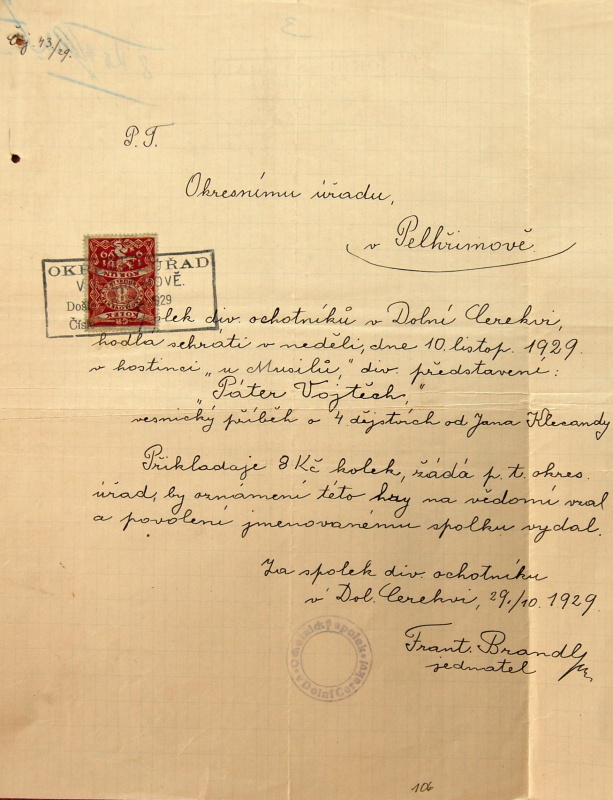 Čj 43/29.
3
P. T.
Okresnímu úřadu,
v Pelhřimově.
OKR ÚŘAD
V OVĚ.
Doš 1929
Čís
8
KOLEK
olek div. ochotníků v Dolní Cerekvi,
hodlá sehrati v neděli, dne 10. listop. 1929.
v hostinci „u Musilů," div. představení:
„Páter Vojtěch,"
vesnický příběh o 4 dějstvích od Jana Klecandy
Přikladaje 8 Kč kolek, žádá p. t. okres.
úřad, by oznámení této hry na vědomí vzal
a povolení jmenovanému spolku vydal.
Za spolek div. ochotníku
v Dol. Cerekvi, 29./10. 1929.
Frant. Brandl
jednatel
Ochotnický spolek
v Dolní Cerekvi
106